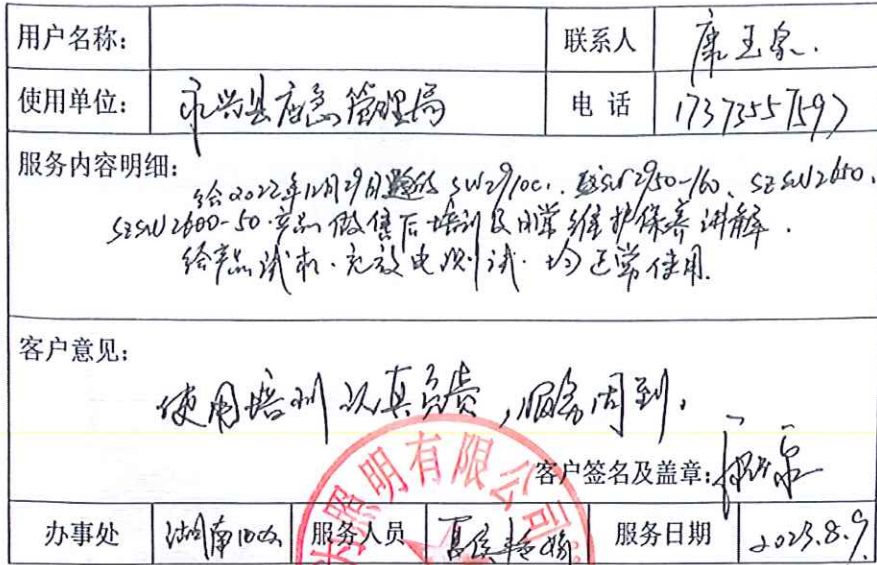 用户名称: 联系人 康玉泉.
使用单位: 永兴县应急管理局 电 话 17373557597
服务内容明细:
给2022年12月29日 SW2910C. SW2950-160、SZSW2650、
SZSW2600-50.产品做售后培训及日常维护保养讲解.
给产品试机.充放电测试.均正常使用.
客户意见:
使用培训认真负责,服务周到.
客户签名及盖章:
明有限公司
办事处 湖南 服务人员 夏侯 服务日期 2023.8.9.